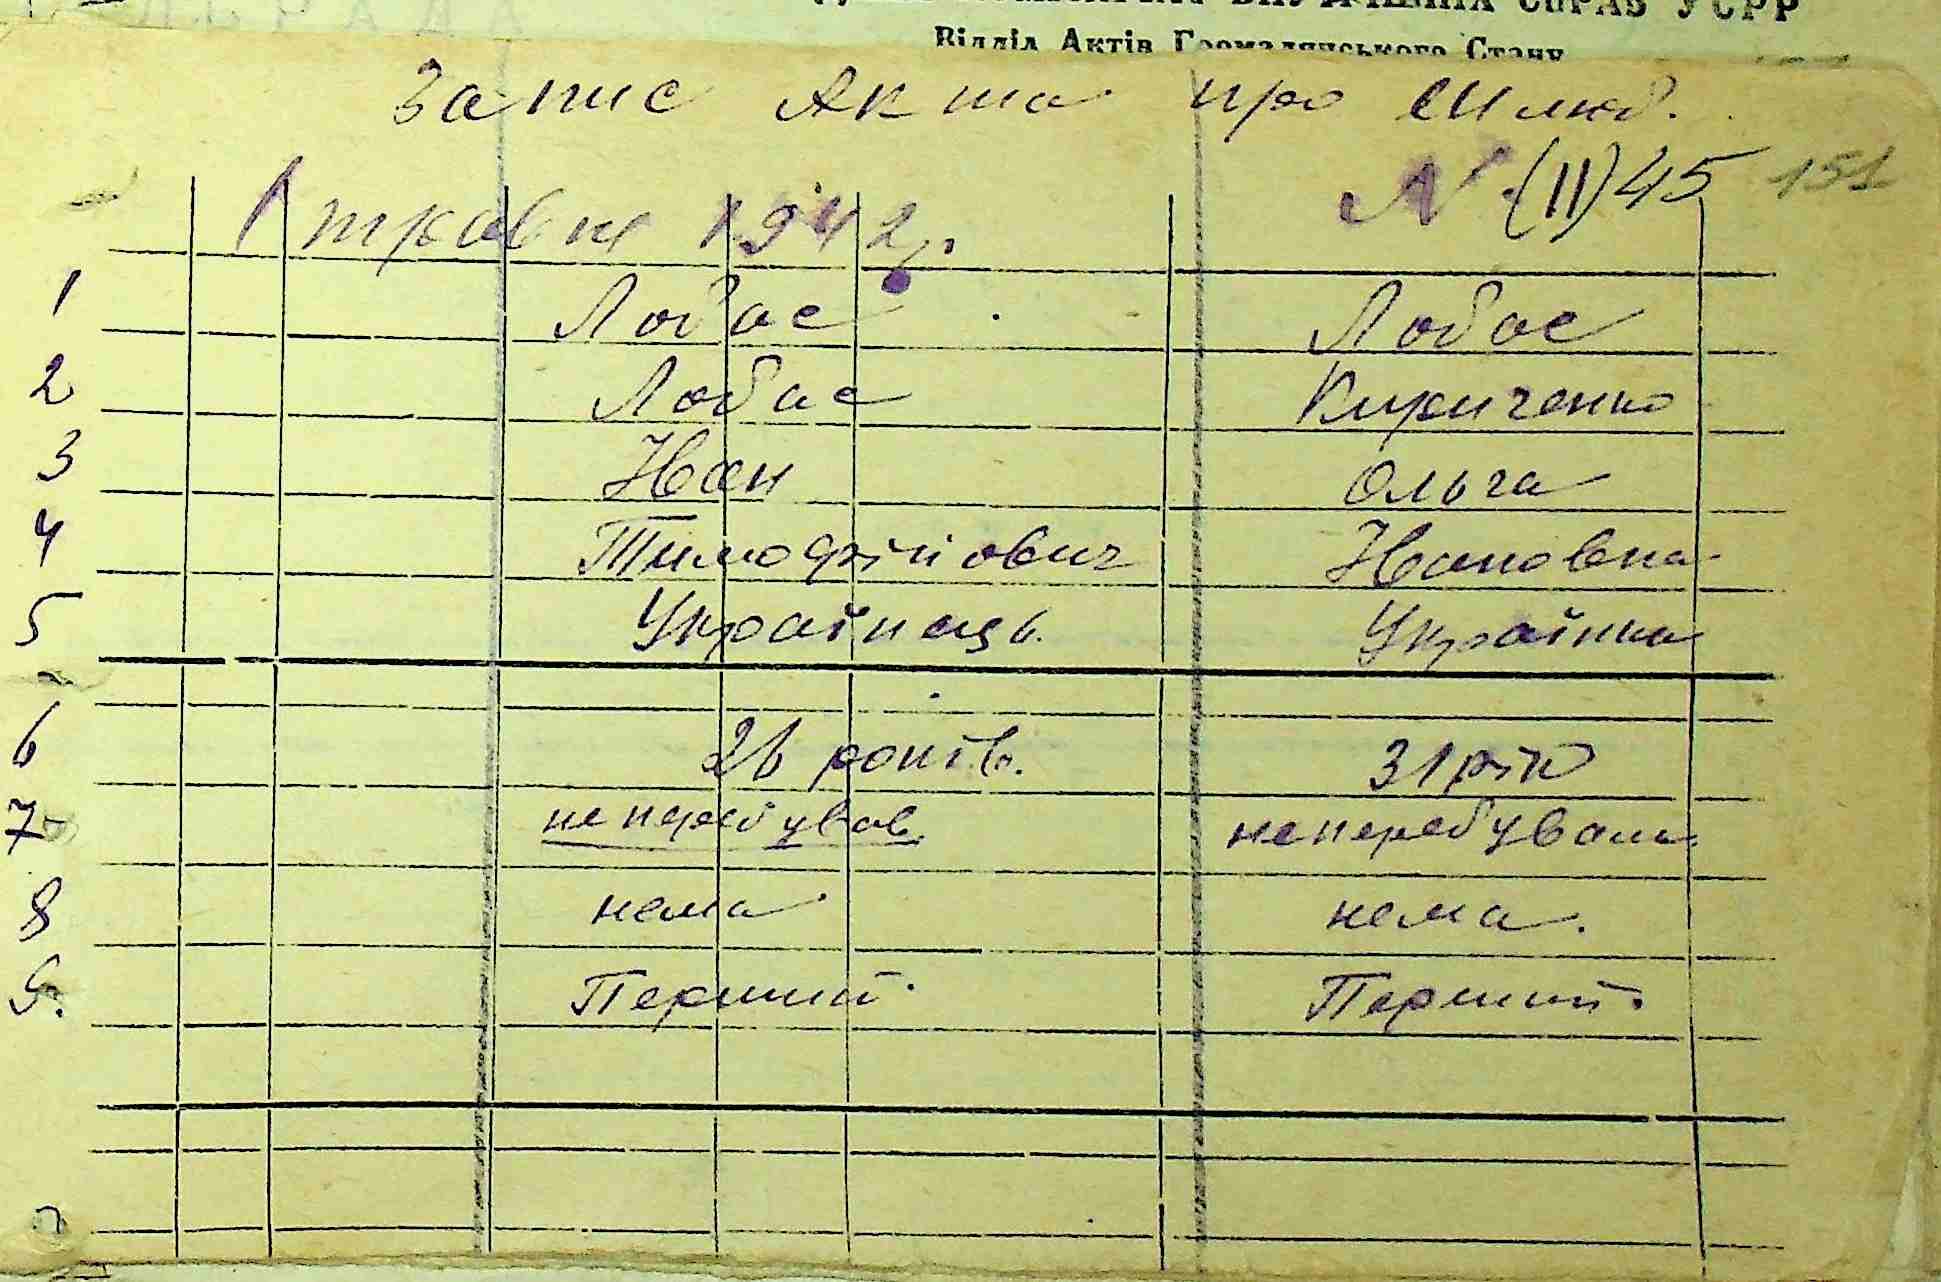 ВНУТРІШНІХ СПРАВ УСРР
Відділ Актів Громадянського Стану
Запис Акта про шлюб.
1 травня 1942 р. № (11) 45 151
1 Лобас Лобас
2 Лобас Кириченко
3 Иван Ольга
4 Тимофійович Ивановна
5 Українець. Українка
6 26 років. 31 рік
7 не перебував. не перебувала
8 нема нема.
9. Перший. Перший.